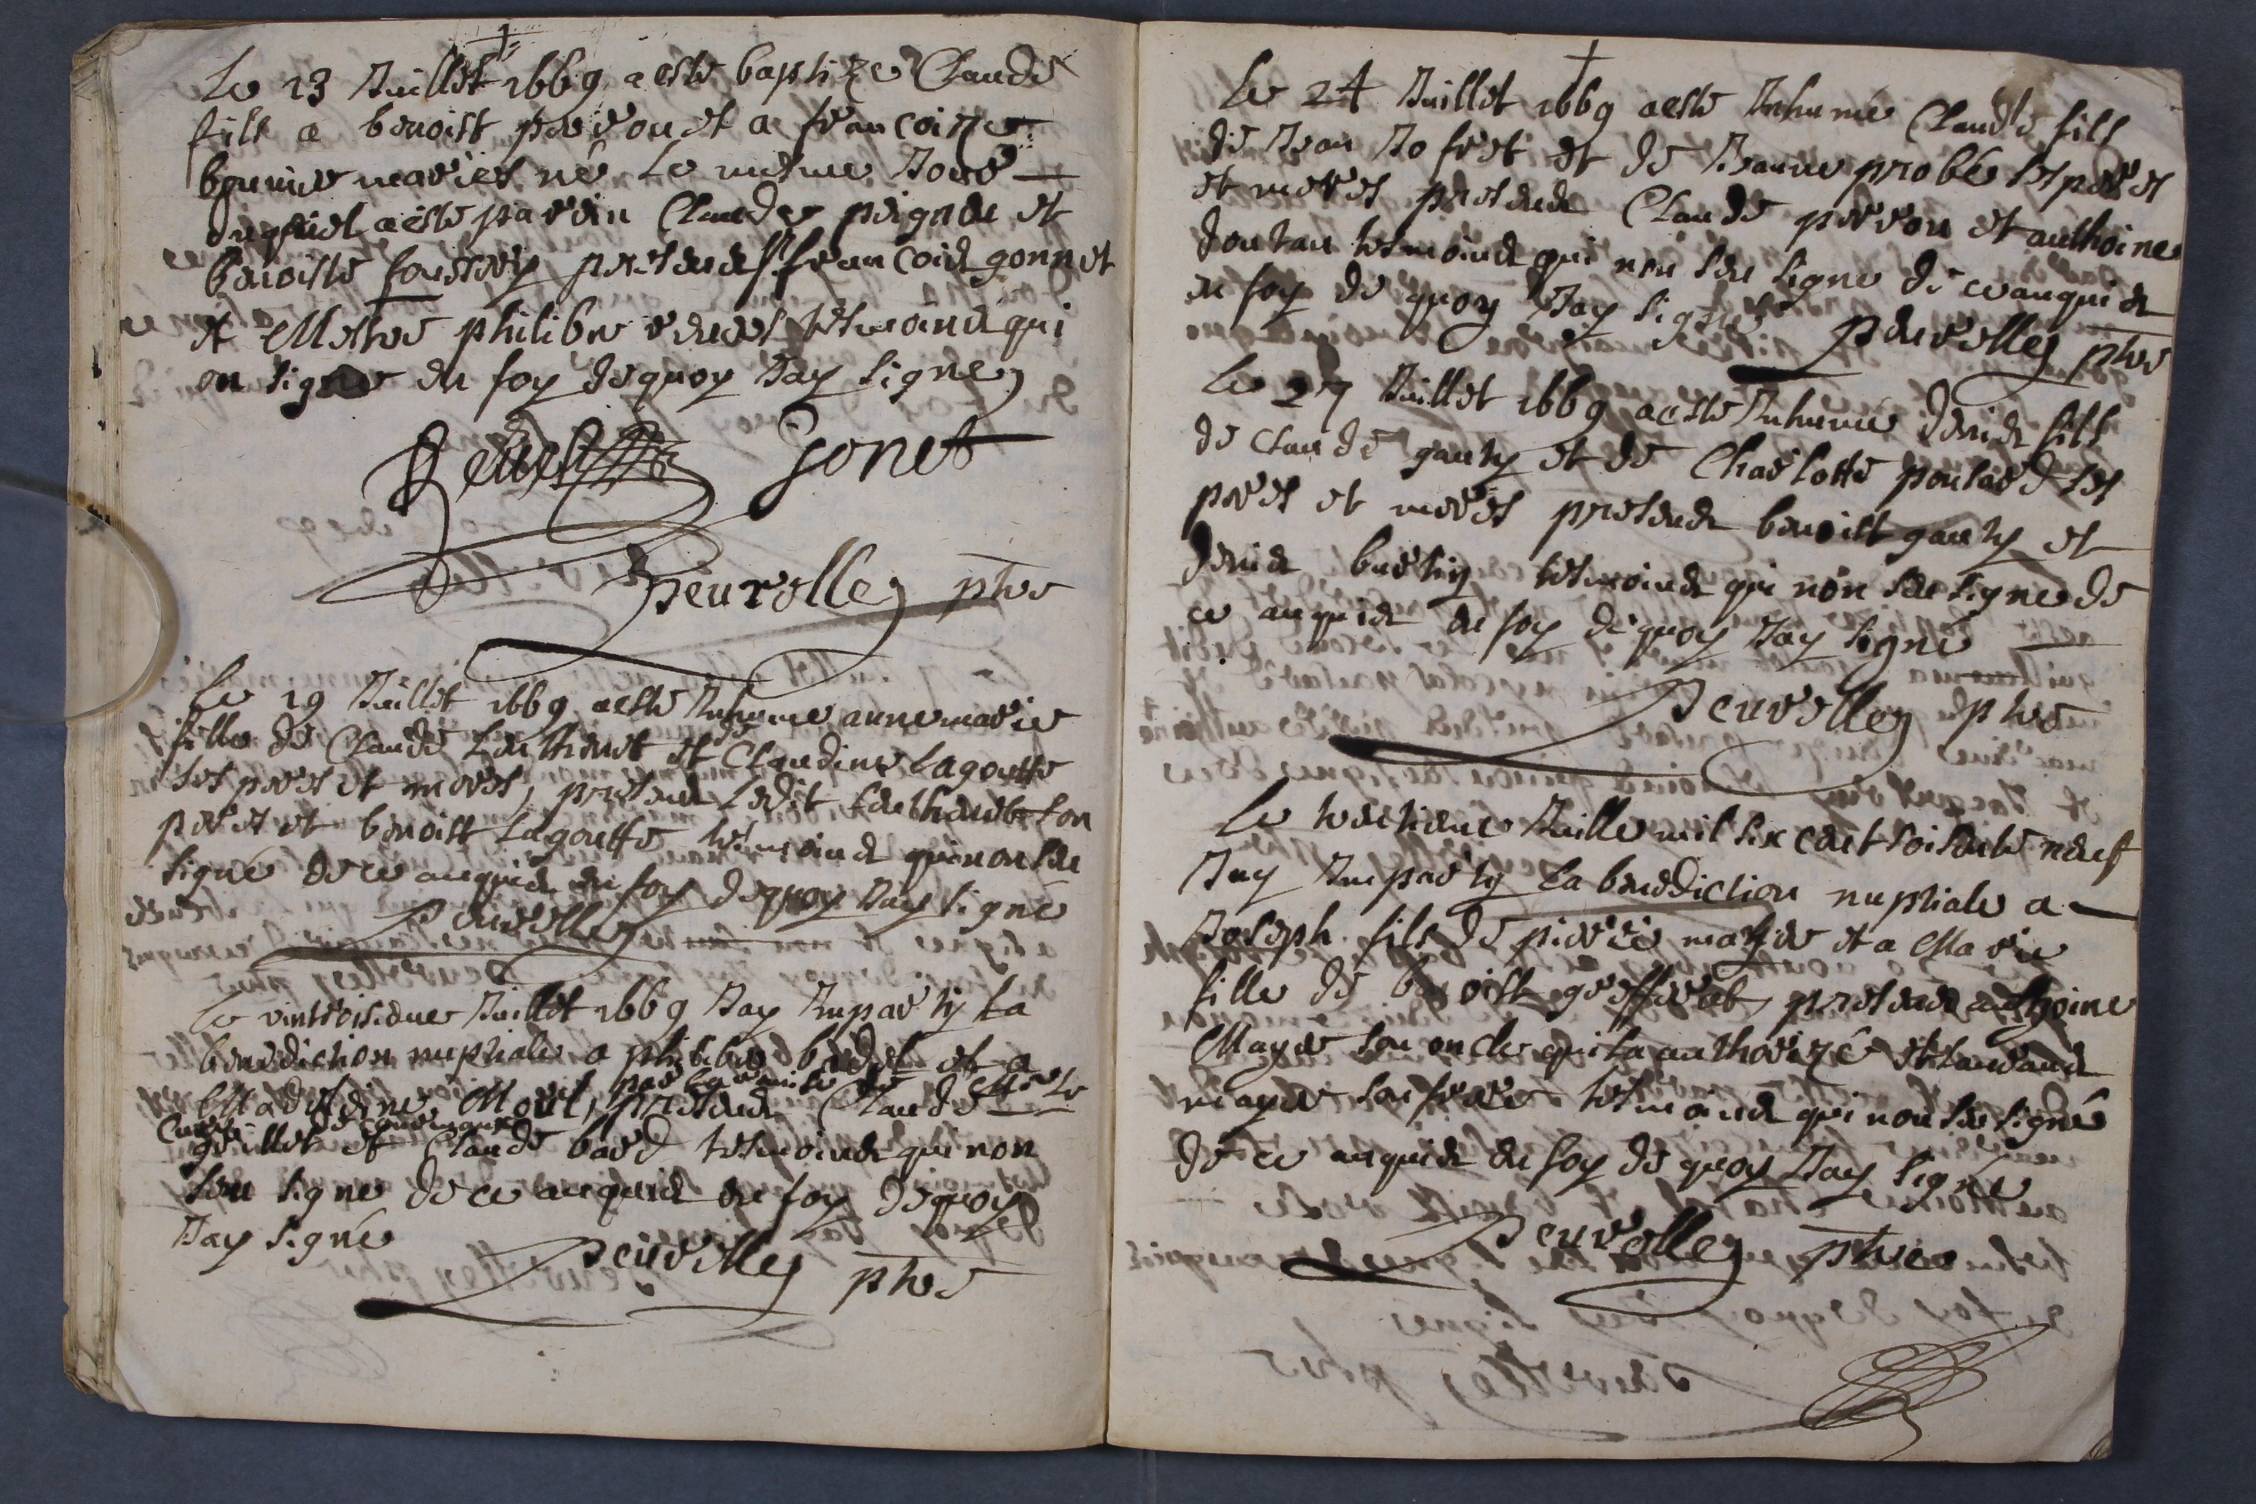 Le 13 Juillet 1669 a este baptize Claude
fils a benoist perron et a francoize
mariez né le mesme Jour
duquel a este parein Claude et
benoiste presens francois gonnet
et Messre philibe temoins qui
on signe en foy dequoy Jay signe
gonet
Peurolley ptre
Le 19 Juillet 1669 a este Inhume anne marie
fille de Claude et de Claudine lagoutte
ses peres et meres, presens ledit son
pere et benoist lagoutte temoins qui non sceu
signé de ce enquis en foy dequoy Jay signé
Peurolley
Le vintroisieme Juillet 1669 Jay Imparty la
benediction nuptiale a philibe et a
presens Claude
et Claude bard temoins qui non
sceu signe de ce enquis en foy dequoy
Jay signé
Peurolley ptre
Le 24 Juillet 1669 a este Inhumé Claude fils
de Jean Jofret et de Jeanne probe ses peres
et meres presens Claude perron et anthoine
temoins qui non sceu signe de ce enquis
en foy de quoy Jay signé Peurolley ptre
Le 27 Juillet 1669 a este Inhumé denis fils
de Claude gauty et de Charlotte poulard ses
peres et meres presens benoist gauty et
denis temoins qui non sceu signe de
ce enquis en foy dequoy Jay signé
Peurolley ptre
Le trentieme Juille mil six cent soisente neuf
Jay Imparty la benediction nuptiale a
Joseph fils de pierre et a Marie
fille de benoist presens anthoine
son oncle qui la authorizé et
son frere temoins qui non sceu signé
de ce enquis en foy de quoy Jay signé
Peurolley ptre